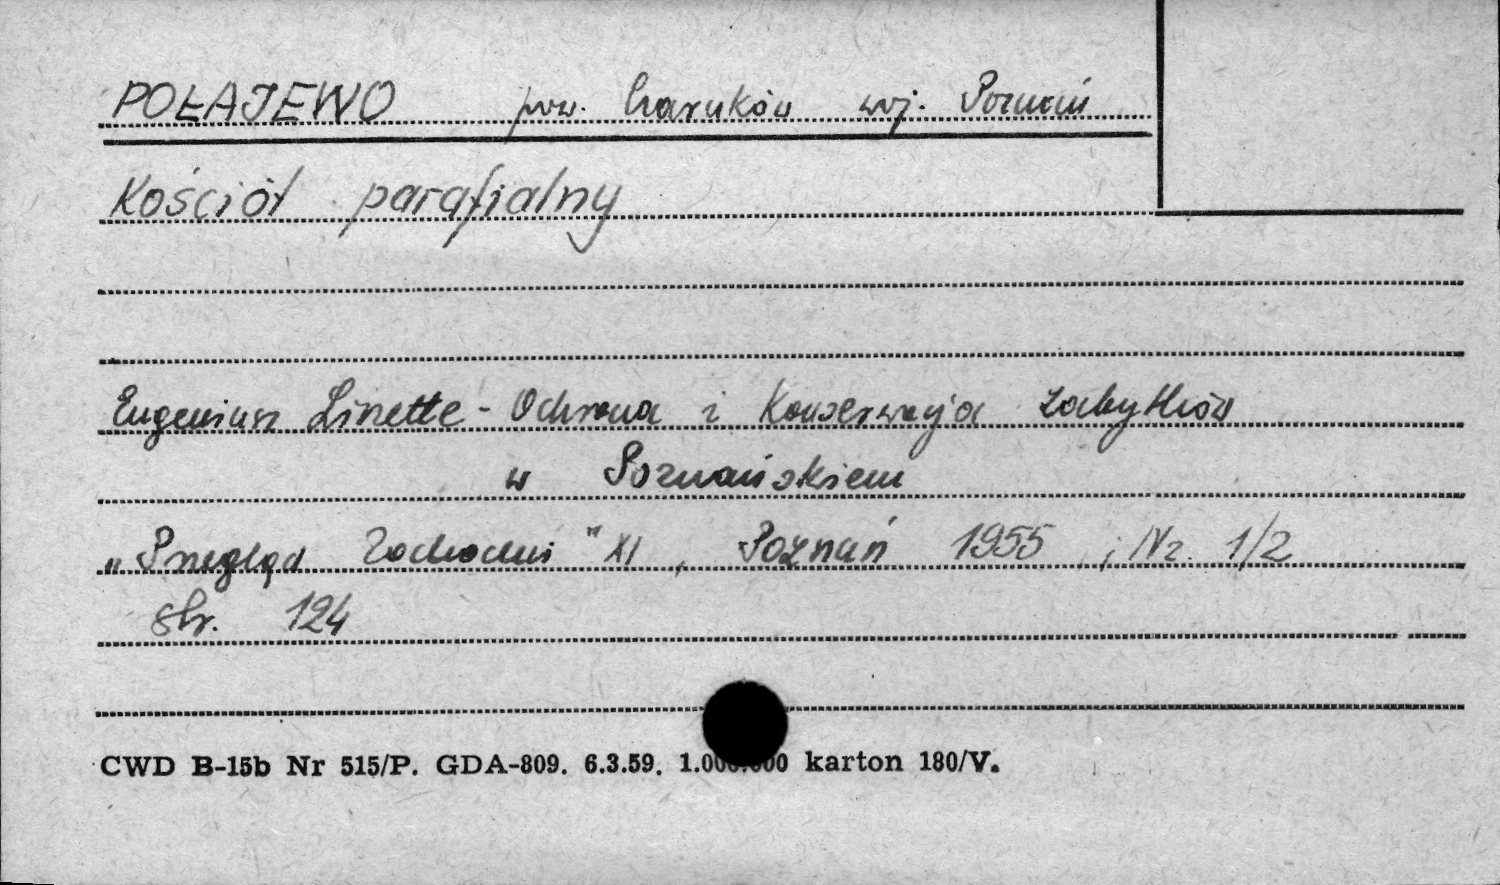 POŁAJEWO pow. Czarnków woj. Poznań
Kościół parafialny
Eugeniusz Linette - Ochrona i Konserwacja zabytków
w Poznańskiem
„Przegląd Zachodni" XI, Poznań 1955, Nr. 1/2
str. 124
CWD B-15b Nr 515/P. GDA-809. 6.3.59. 1.000.000 karton 180/V.